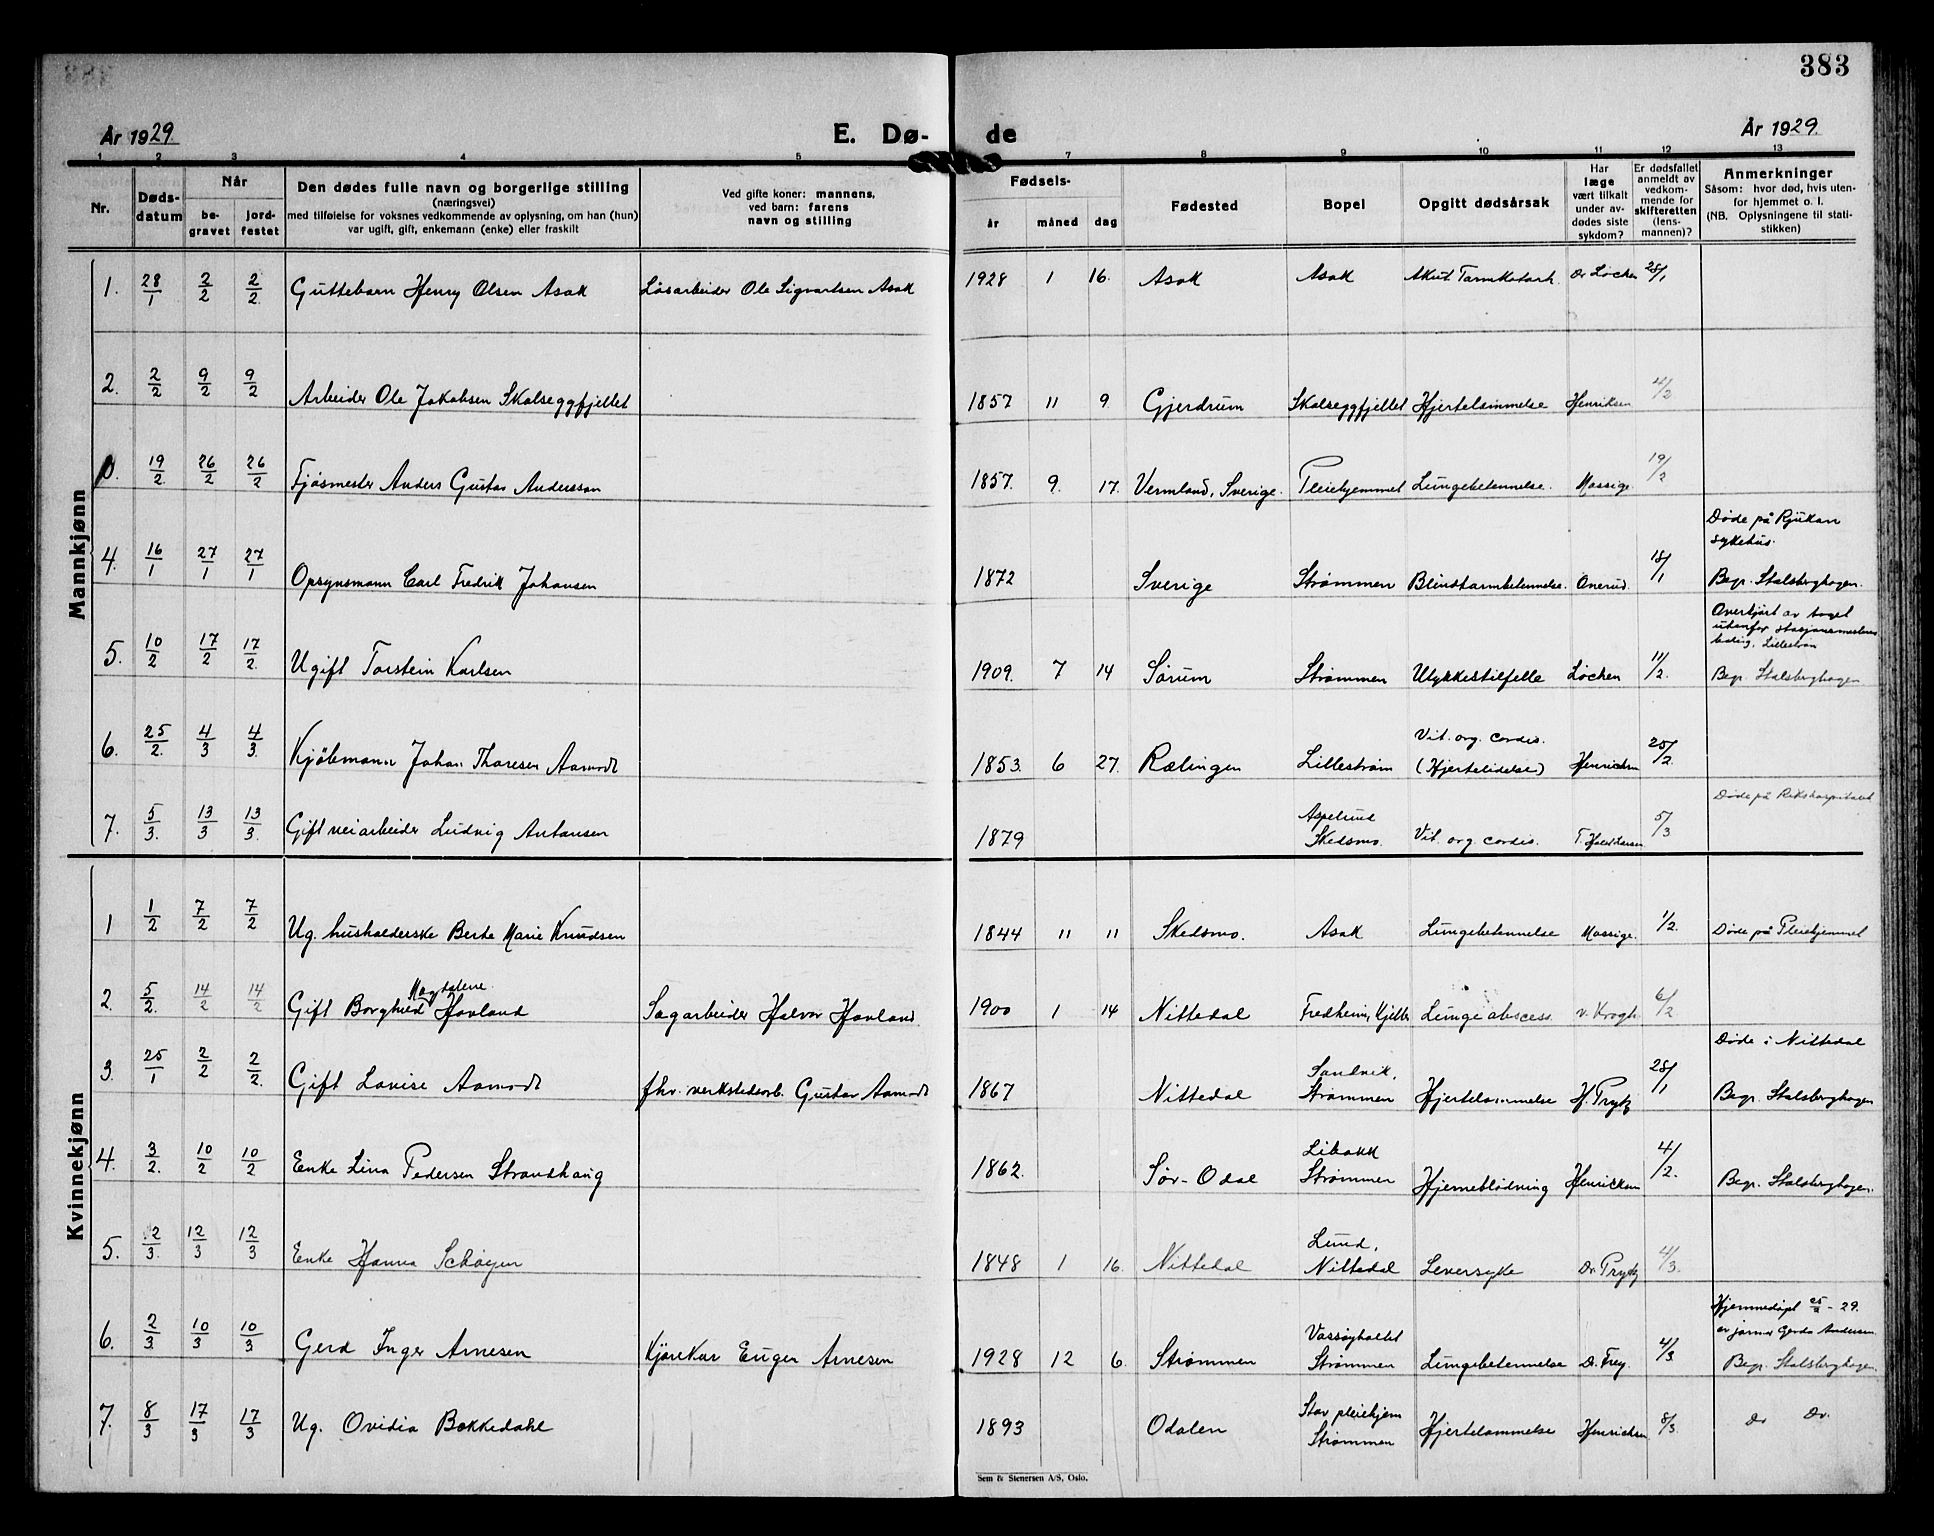 383
År 1929.
E. Dø-
de
År 1929.
1 2 3 4 5 7 8 9 10 11 12 13
Nr.
Døds-
datum
Når
be-
gravet
jord-
festet
Den dødes fulle navn og borgerlige stilling
(næringsvei)
med tilføielse for voksnes vedkommende av oplysning, om han (hun)
var ugift, gift, enkemann (enke) eller fraskilt
Ved gifte koner: mannens,
ved barn: farens
navn og stilling
Fødsels-
år
måned
dag
Fødested
Bopel
Opgitt dødsårsak
Har
læge
vært tilkalt
under av-
dødes siste
sykdom?
Er dødsfallet
anmeldt av
vedkom-
mende for
skifteretten
(lens-
mannen)?
Anmerkninger
Såsom: hvor død, hvis uten-
for hjemmet o. l.
(NB. Oplysningene til stati-
stikken)
Mannkjønn
1. 28/1 2/2 2/2 Guttebarn Henry Olsen Asak Løsarbeider Ole Sigvartsen Asak 1928 1 16. Asak Asak Akut Tarmkatarh. Dr Løchen 28/1
2. 2/2 9/2 9/2 Arbeider Ole Jakobsen Skalseggfjellet 1857 11 9. Gjerdrum Skalseggfjellet Hjertelammelse Henriksen 4/2
19/2. 26/2 26/2 Fjøsmester Anders Gustav Andersson 1857. 9. 17. Vermland, Sverige. Pleiehjemmet Lungebetennelse. Massige. 19/2
Døde på Rjukan
sykehus.
4. 16/1 27/1 27/1 Opsynsmann Carl Fredrik Johansen 1872 Sverige Strømmen Blindtarmbetennelse. Anerud. 18/1 Begr. Stalsberghagen.
Overkjørt av toget
utenfor stasjonsmesterens
bolig, Lillestrøm
5. 10/2 17/2 17/2. Ugift Torstein Karlsen 1909. 7 14 Sørum Strømmen Ulykkestilfelle Løchen 11/2. Begr. Stalsberghagen
Vit. org. cordis.
6. 25/2. 4/3 4/3. Kjøbmann Johan Thoresen Aamodt 1853. 6 27. Rælingen Lillestrøm (Hjertelidelse) Henrichsen 25/2.
Døde på Rikshospitalet
Aspelund
7. 5/3. 13/3 13/3. Gift veiarbeider Ludvig Antonsen 1879 Skedsmo. Vit. org. cordis. 5/3
Kvinnekjønn
1 1/2 7/2 7/2 Ug. husholderske Berte Marie Knudsen 1844 11 11 Skedsmo. Asak Lungebetennelse Massige. 1/2. Døde på Pleiehjemmet
Magdalene
2. 5/2. 14/2 14/2 Gift Borghild Hovland Sagarbeider Halvor Hovland. 1900 1 14 Nittedal Fredheim, Kjeller Lunge abscess v. Krogh. 6/2
Døde i Nittedal
Sandvik,
3. 25/1 2/2 2/2. Gift Lovise Aamodt fhv. verkstedarb. Gustav Aamodt 1867 Nittedal Strømmen Hjertelammelse H. Prytz 28/1 Begr. Stalsberghagen
Libakk
4. 3/2. 10/2 10/2 Enke Lina Pedersen Strandhaug 1862. Sør-Odal Strømmen Hjerneblødning Henrichsen 4/2. Begr. Stalsberghagen.
Lund,
5. 2/3. 12/3 12/3 Enke Hanna Schøyen 1848 1 16. Nittedal Nittedal Leversyke Dr. Prytz 4/3.
Hjemmedøpt 25/2 - 29.
av jormor Gerda Andersen.
Vassøyholtet
6. 2/3. 10/3 10/3 Gerd Inger Arnesen Kjørekar Eugen Arnesen 1928 12 6. Strømmen Strømmen Lungebetennelse Dr. Frey. 4/3. Begr. Stalsberghagen.
Stav pleiehjem
7. 8/3 17/3 17/3 Ug. Ovidia Bekkedahl 1893 Odalen Strømmen Hjertelammelse Henrichsen 8/3. Do Do.
Sem & Stenersen A/S, Oslo.